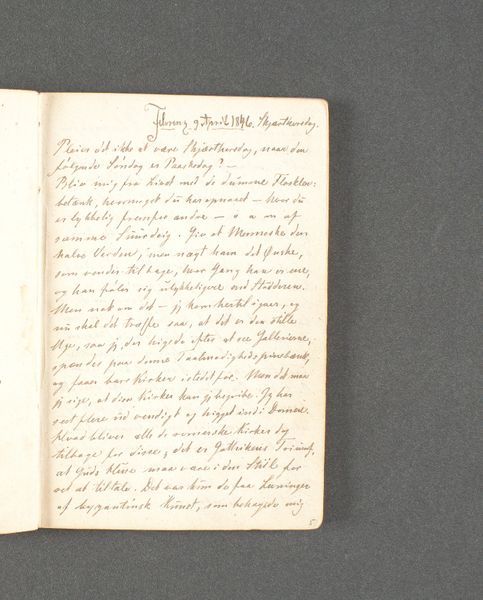 Florenz 9. April 1846. Skjærthorsdag.
Pleier det ikke at være Skjærthorsdag, naar den
følgende Søndag er Paaskedag? —
Bliv mig fra Livet med de dumme Floskler:
betænk, hvormeget du har opnaaet — hvor du
er lykkelig fremfor andre — o a m af
samme Suurdeig. Giv et Menneske den
halve Verden, men nægt ham det Ønske,
som vender tilbage, hver Gang han er ene,
og han føler sig ulykkeligere end Stodderen.
Men nok om det — jeg kom hertil igaar, og
nu skal det træffe saa, at det er den stille
Uge, saa jeg, der higede efter at see Gallerierne,
spændes paa denne Taalmodighedspinebænk,
og faaer bare Kirker istedetfor. Men det maa
jeg sige, at disse Kirker kan jeg begribe. Jeg har
seet flere udvendigt og kigget ind i Domen.
Hvad bliver alle de romerske Kirker dog
tilbage for disse; det er Triumf,
at Guds Huse maa være i den Stiil for
ret at tiltale. Det var kun de faa Levninger
af byzantinsk Kunst, som behagede mig
5